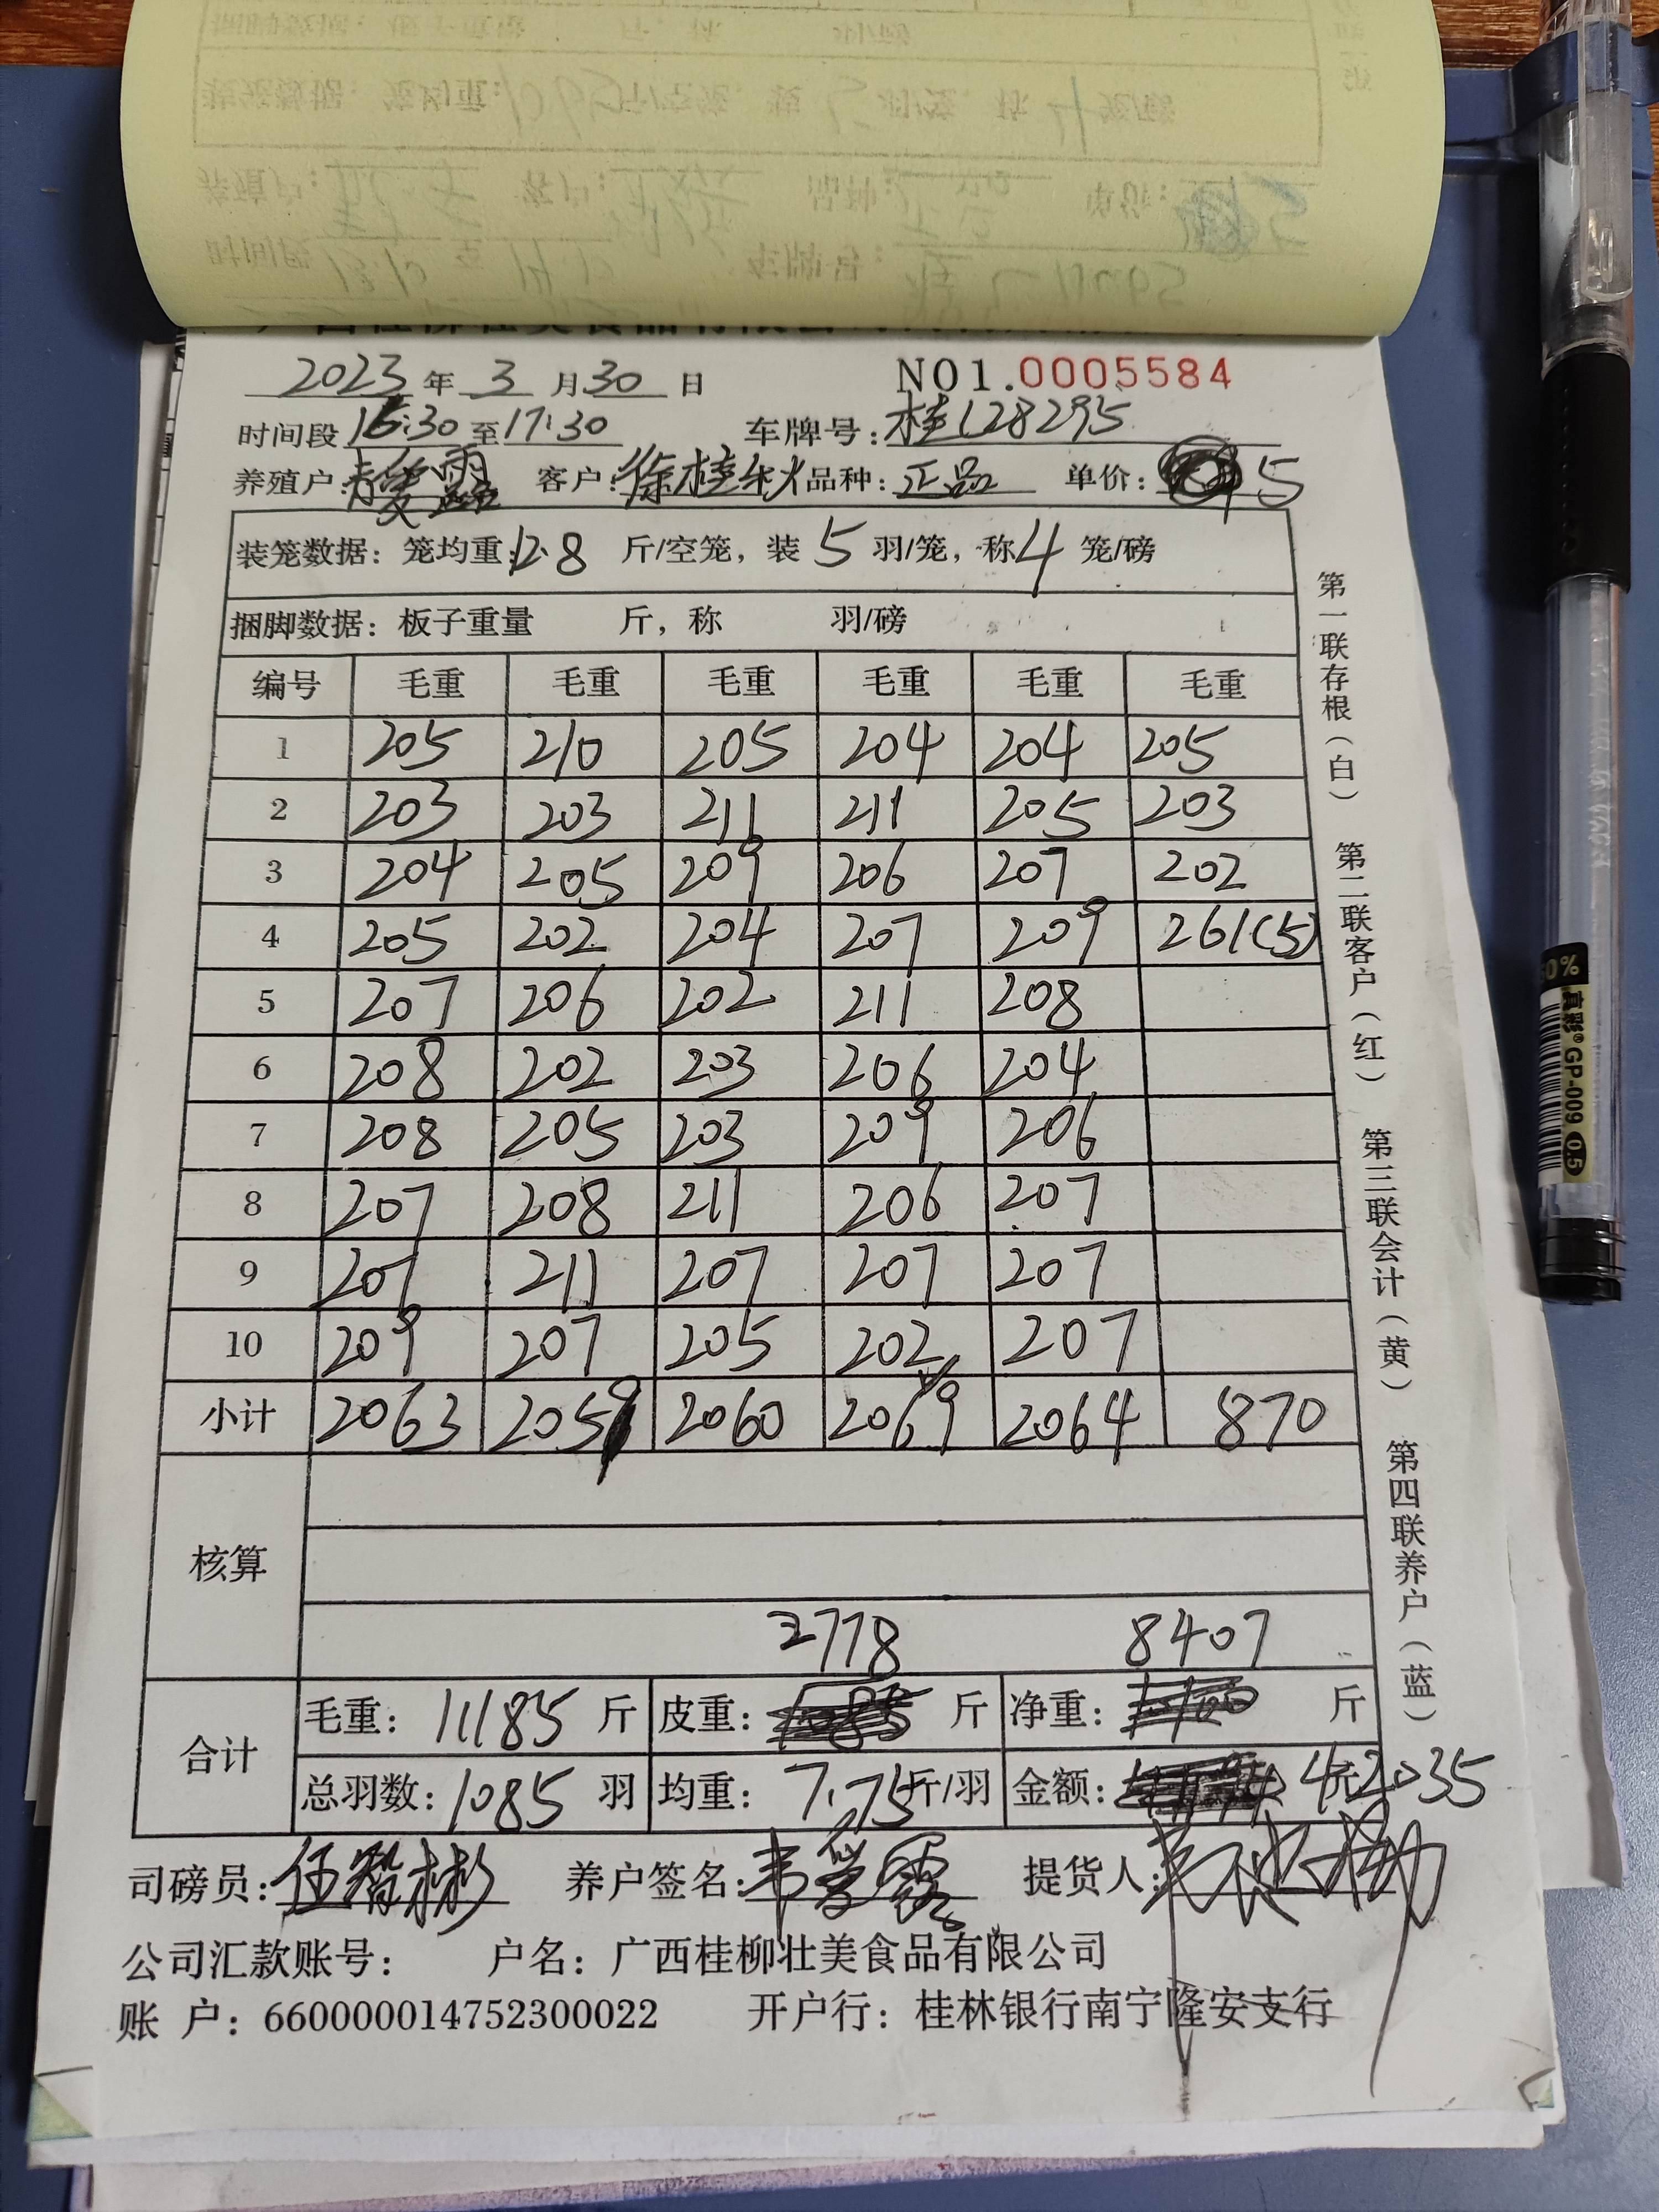 2023 年 3 月 30 日 NO1.0005584
时间段 16:30 至 17:30 车牌号: 桂L28295
养殖户: 客户: 徐桂秋 品种: 正品 单价: 5
装笼数据: 笼均重: 12.8 斤/空笼, 装 5 羽/笼, 称 4 笼/磅
捆脚数据: 板子重量 斤, 称 羽/磅
编号 毛重 毛重 毛重 毛重 毛重 毛重
1 205 210 205 204 204 205
2 203 203 211 211 205 203
3 204 205 209 206 207 202
4 205 202 204 207 209 261(5)
5 207 206 202 211 208
6 208 202 203 206 204
7 208 205 203 209 206
8 207 208 211 206 207
9 207 211 207 207 207
10 209 207 205 202 207
小计 2063 2059 2060 2069 2064 870
核算
2778 8407
合计
毛重: 11185 斤 皮重: 斤 净重: 斤
总羽数: 1085 羽 均重: 7.75 斤/羽 金额: 42035
司磅员: 伍智彬 养户签名: 提货人:
公司汇款账号: 户名: 广西桂柳壮美食品有限公司
账 户: 660000014752300022 开户行: 桂林银行南宁隆安支行
第一联存根(白) 第二联客户(红) 第三联会计(黄) 第四联养户(蓝)
真彩® GP-009 0.5